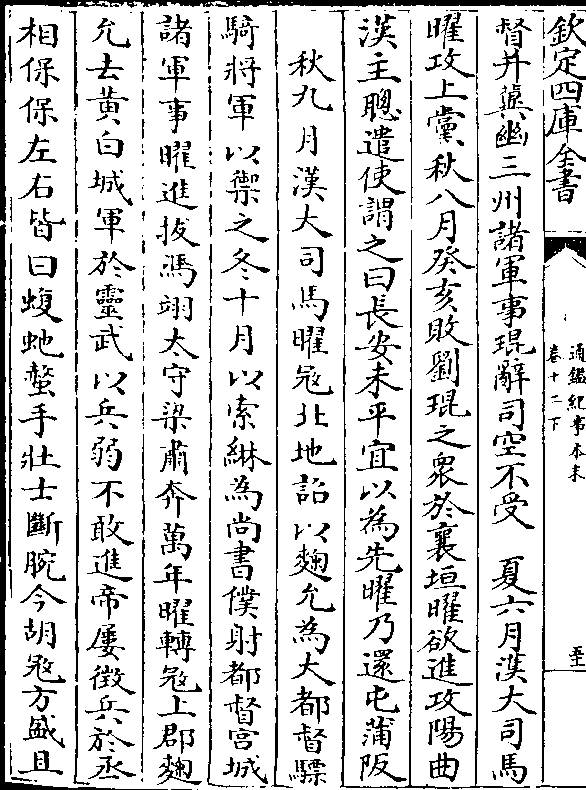 欽定四庫全書
通鑑紀事本末
卷十二下
至
督并冀幽三州諸軍事琨辭司空不受　夏六月漢大司馬
曜攻上黨秋八月癸亥敗劉琨之衆於襄垣曜欲進攻陽曲
漢主聰遣使謂之曰長安未平宜以為先曜乃還屯蒲阪
秋九月漢大司馬曜寇北地詔以麴允為大都督驃
騎將軍以禦之冬十月以索綝為尚書僕射都督宫城
諸軍事曜進拔馮翊太守梁肅奔萬年曜轉寇上郡麴
允去黄白城軍於靈武以兵弱不敢進帝屢徵兵於丞
相保保左右皆曰蝮蛇螫手壯士斷腕今胡寇方盛且